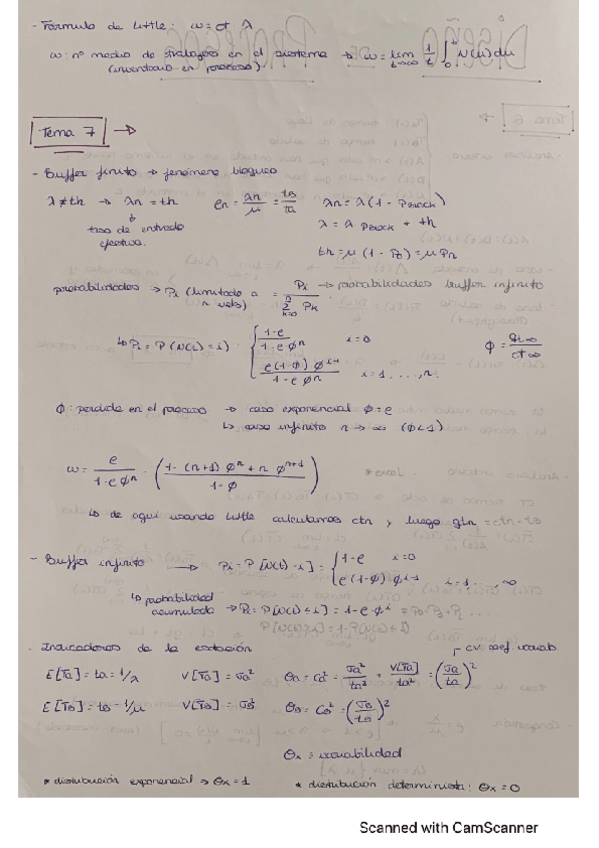 - Fórmula de Little: ω = ct · λ
ω: nº medio de trabajos en el sistema → ω = lim t→∞ 1/t ∫₀ᵗ N(u) du
(inventario en proceso)
Tema 7 →
- Buffer finito → fenómeno bloqueo
λ ≠ th → λn = th   en = λn/μ = tB/ta   λn = λ(1 - Pblock)
tasa de entrada efectiva.   λ = λ Pblock + th
th = μ(1 - P0) = μ Pn
probabilidades → Pi (limitado a n uds) = Pi / Σ Pk → probabilidades buffer infinito
↳ Pi = P(N(t) = i) = { (1-e)/(1-eφⁿ)   i=0   φ = gt∞/ct∞
e(1-φ)φⁱ⁻¹/(1-eφⁿ)   i=1...,n.
φ: perdida en el proceso → caso exponencial φ=e
↳ caso infinito n→∞ (φ<1)
ω = e/(1-eφⁿ) · ( (1-(n+1)φⁿ + nφⁿ⁺¹)/(1-φ) )
↳ de aquí usando Little calculamos ctn y luego gtn = ctn - tB
- Buffer infinito → Pi = P[N(t)=i] = { 1-e   i=0
e(1-φ)φⁱ⁻¹   i=1...,∞
↳ probabilidad acumulada → Pi = P[N(t)≤i] = 1-eφⁱ = P0+P1+P2...
- Indicadores de la estación
CV coef variab
E[Ta] = ta = 1/λ   V[Ta] = σa²   θa = Ca² = σa²/ta² = V[Ta]/ta² = (σa/ta)²
E[TB] = tB = 1/μ   V[TB] = σB²   θB = CB² = (σB/tB)²
θx = variabilidad
* distribución exponencial → θx = 1   * distribución determinista: θx = 0
Scanned with CamScanner